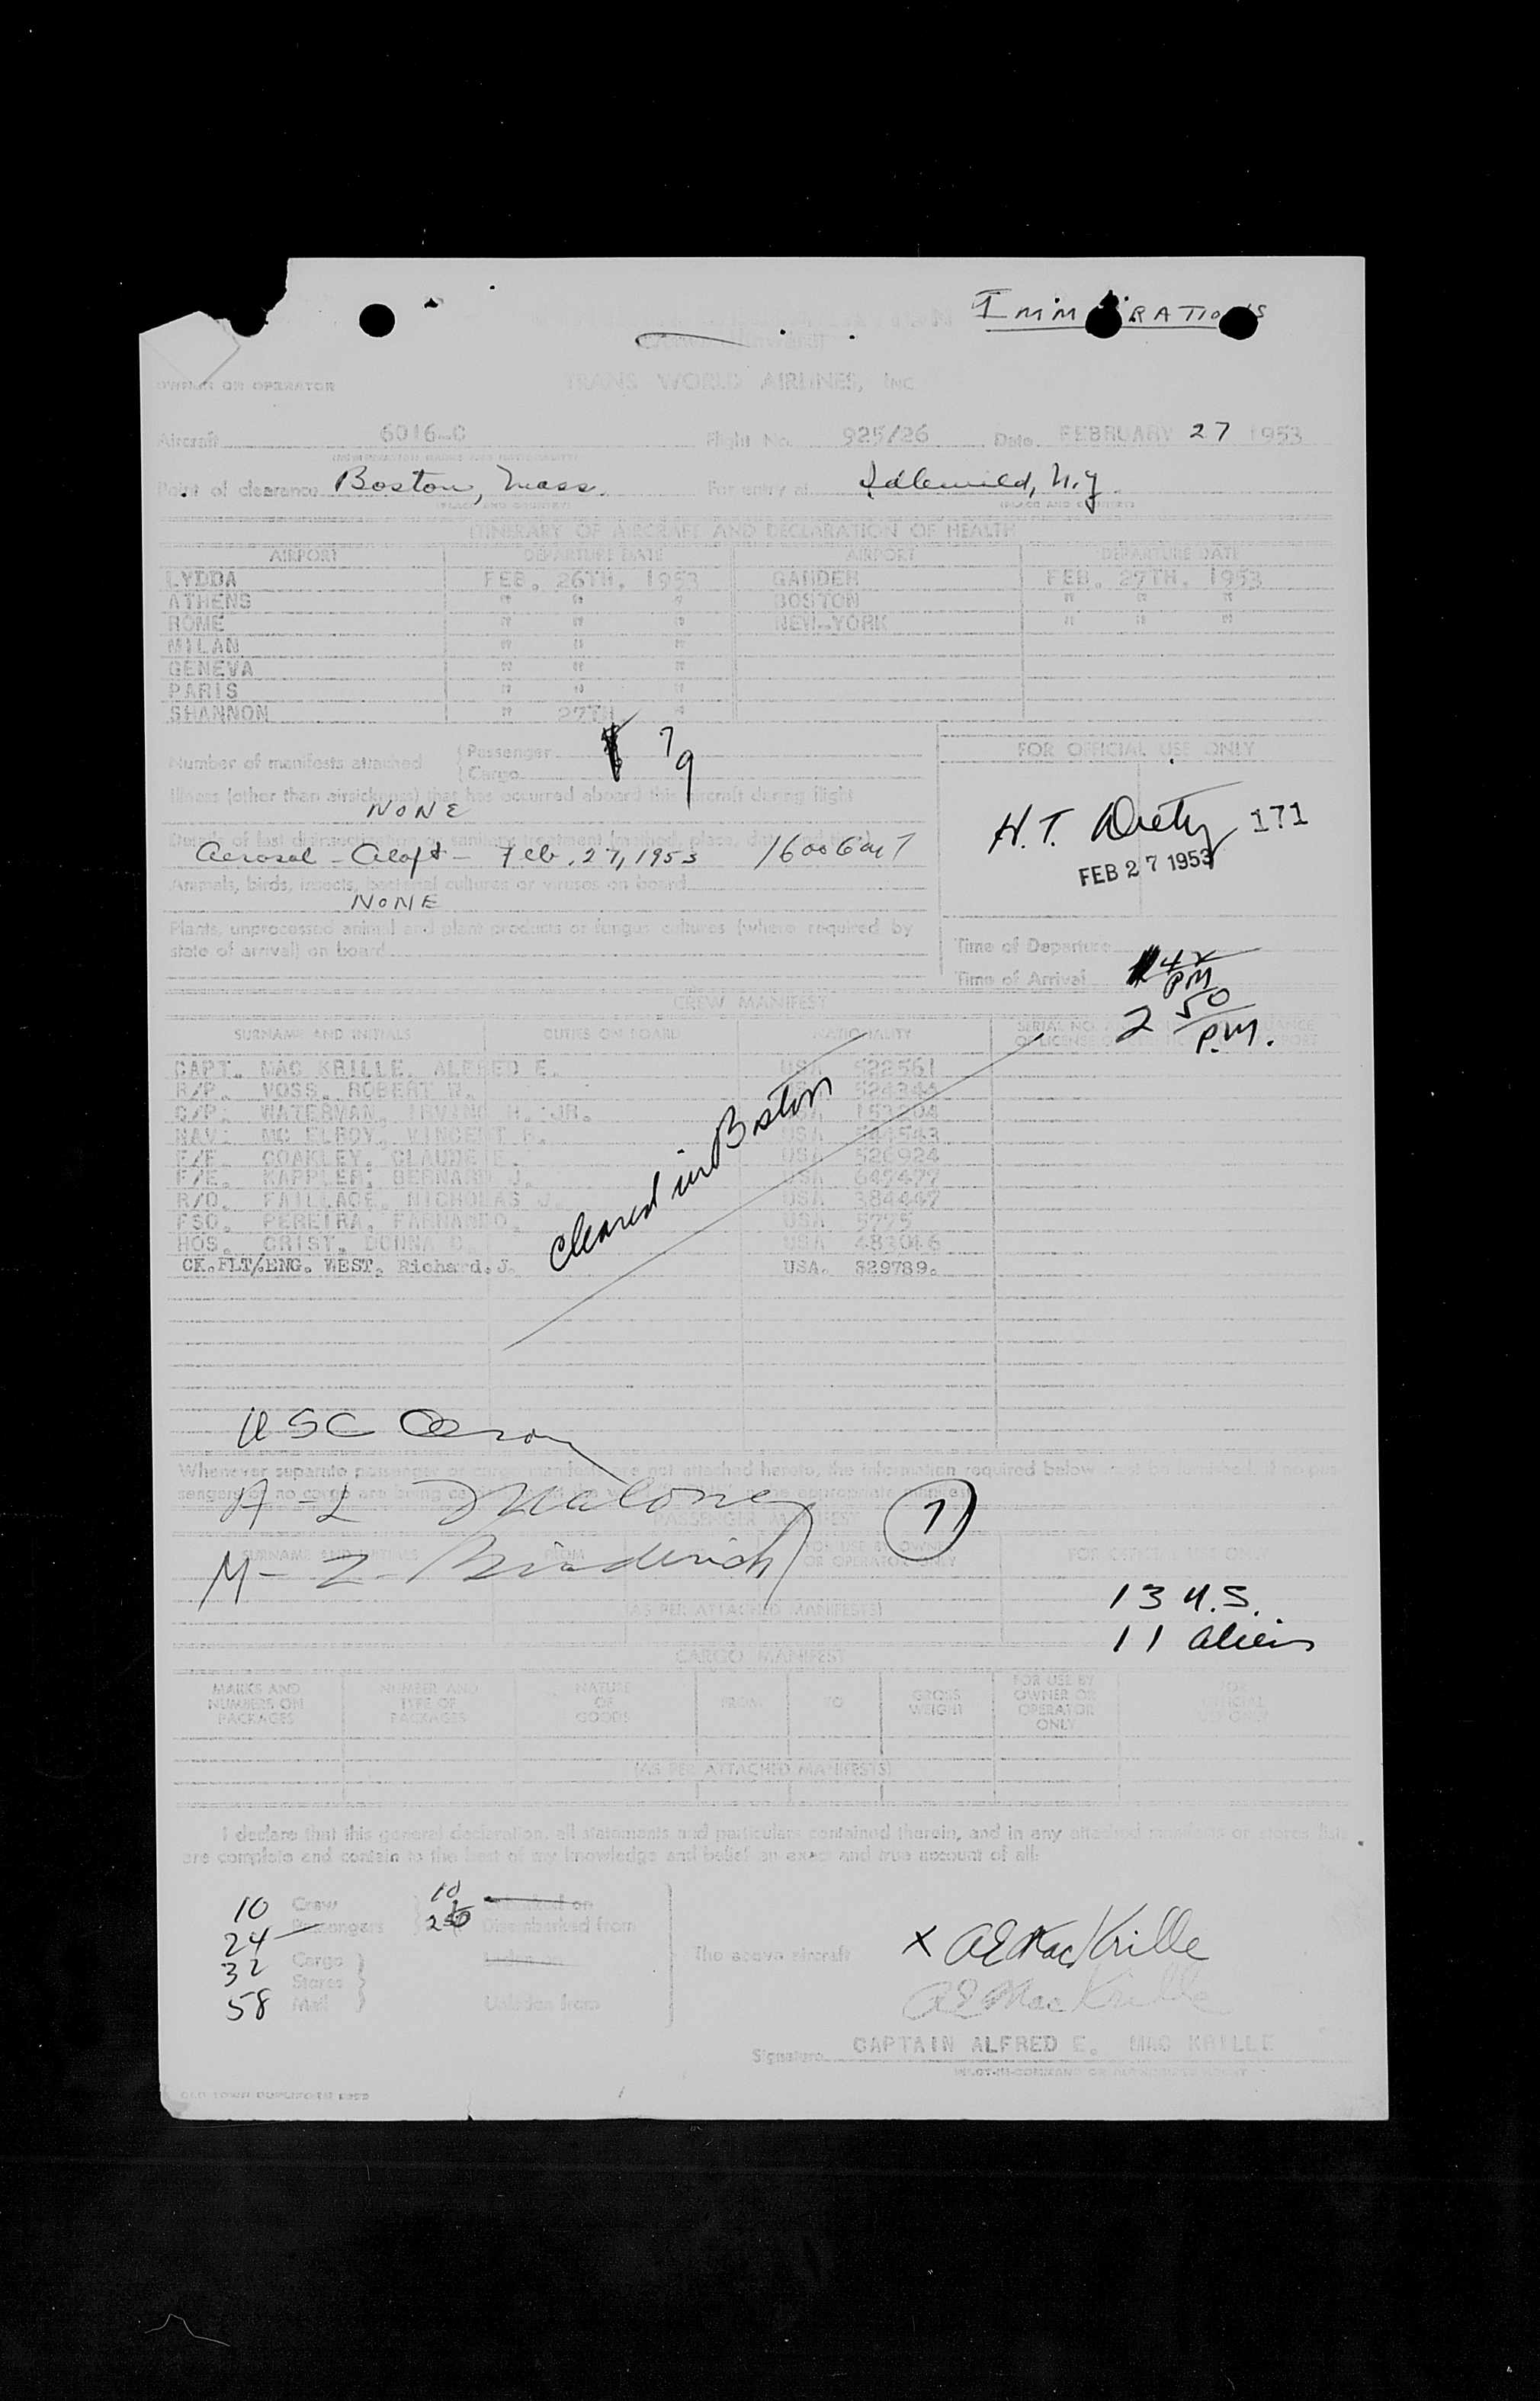 IMMIGRATIONS
OWNER OR OPERATOR
TRANS WORLD AIRLINES, INC
Aircraft 6016-C Flight No. 925/26 Date FEBRUARY 27 1953
Point of clearance Boston, Mass. For entry at Idlewild, N.Y.
(PLACE AND COUNTRY) (PLACE AND COUNTRY)
ITINERARY OF AIRCRAFT AND DECLARATION OF HEALTH
AIRPORT DEPARTURE DATE AIRPORT DEPARTURE DATE
LYDDA FEB. 26TH. 1953 GANDER FEB. 27TH. 1953
ATHENS " " " BOSTON " " "
ROME " " " NEW-YORK " " "
MILAN " " "
GENEVA " " "
PARIS " " "
SHANNON " 27TH "
Number of manifests attached Passenger 7
Cargo 9
FOR OFFICIAL USE ONLY
Illness (other than airsickness) that has occurred aboard this aircraft during flight
NONE
Aerosol - Aloft - Feb. 27, 1953
H.T. 171
FEB 27 1953
Animals, birds, insects, bacterial cultures or viruses on board
NONE
Plants, unprocessed animal and plant products or fungus cultures (where required by
state of arrival) on board
Time of Departure
PM
Time of Arrival 2 50 P.M.
CREW MANIFEST
SURNAME AND INITIALS DUTIES ON BOARD NATIONALITY
CAPT. MAC KRILLE. ALFRED E. USA 522561
R/P. VOSS. ROBERT USA
C/P. WATERMAN, IRVING H. JR. USA
NAV: MC ELROY, VINCENT USA
F/E. COAKLEY, CLAUDE E. USA 526924
F/E. KAPPLER, BERNARD J. USA
R/O. FAILLACE, NICHOLAS J. USA 384447
FSO. PEREIRA, FARNANDO. USA 5775
HOS. CRIST. DONNA USA
CK.FLT/ENG. WEST. Richard.J. USA. 529789.
Cleared in Boston
USC
A - L Malone
M - Z -
7
PASSENGER MANIFEST
SURNAME AND INITIALS FROM FOR USE BY OWNER OR OPERATOR ONLY FOR OFFICIAL USE ONLY
(AS PER ATTACHED MANIFESTS)
13 U.S.
11 aliens
CARGO MANIFEST
MARKS AND NUMBERS ON PACKAGES NUMBER AND TYPE OF PACKAGES NATURE OF GOODS FROM TO GROSS WEIGHT FOR USE BY OWNER OR OPERATOR ONLY FOR OFFICIAL USE ONLY
(AS PER ATTACHED MANIFESTS)
I declare that this general declaration, all statements and particulars contained therein, and in any attached manifests or stores lists
are complete and contain to the best of my knowledge and belief an exact and true account of all:
10 Crew 10 Embarked on
24 Passengers Disembarked from
32 Cargo Laden on
Stores
58 Mail Unladen from
The above aircraft
X AE MacKrille
AE MacKrille
Signature CAPTAIN ALFRED E. MAC KRILLE
PILOT-IN-COMMAND OR AUTHORIZED AGENT